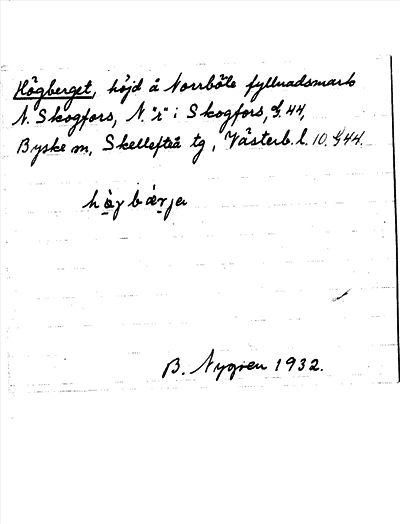 Högberget, höjd å Norrböle fyllnadsmark
N. Skogfors, N. "r" i Skogfors, g. 44,
Byske m, Skellefteå tg, Västerb. l. 10. g 44.
B. Nygren 1932.